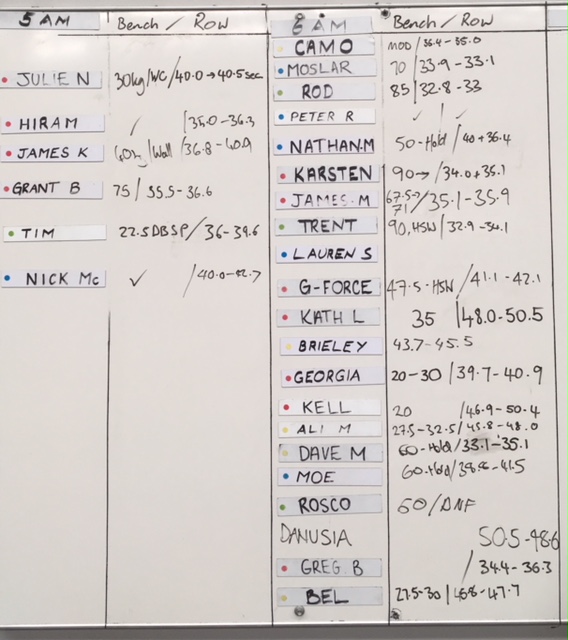 5 AM Bench / Row
JULIE N 30kg/WC/40.0→40.5sec
HIRAM ✓ /35.0-36.3
JAMES K 60kg/Wall /36.8-40.9
GRANT B 75 / 35.5-36.6
TIM 22.5DBSP/36-39.6
NICK Mc ✓ /40.0-42.7
6 AM Bench / Row
CAMO MOD/36.4-35.0
MOSLAR 70 /33.9-33.1
ROD 85/32.8-33
PETER R ✓ ✓
NATHAN.M 50-Hold/40+36.4
KARSTEN 90→/34.0+35.1
JAMES.M 67.5→71/35.1-35.9
TRENT 90,HSW/32.9-34.1
LAUREN S
G-FORCE 47.5-HSW/41.1-42.1
KATH L 35 |48.0-50.5
BRIELEY 43.7-45.5
GEORGIA 20-30/39.7-40.9
KELL 20 /46.9-50.4
ALI M 27.5-32.5/45.8-48.0
DAVE M 60-Hold/33.1-35.1
MOE 60.Hold/38.6-41.5
ROSCO 60/DNF
DANUSIA 50.5-48.6
GREG.B / 34.4-36.3
BEL 27.5-30/46.8-47.7